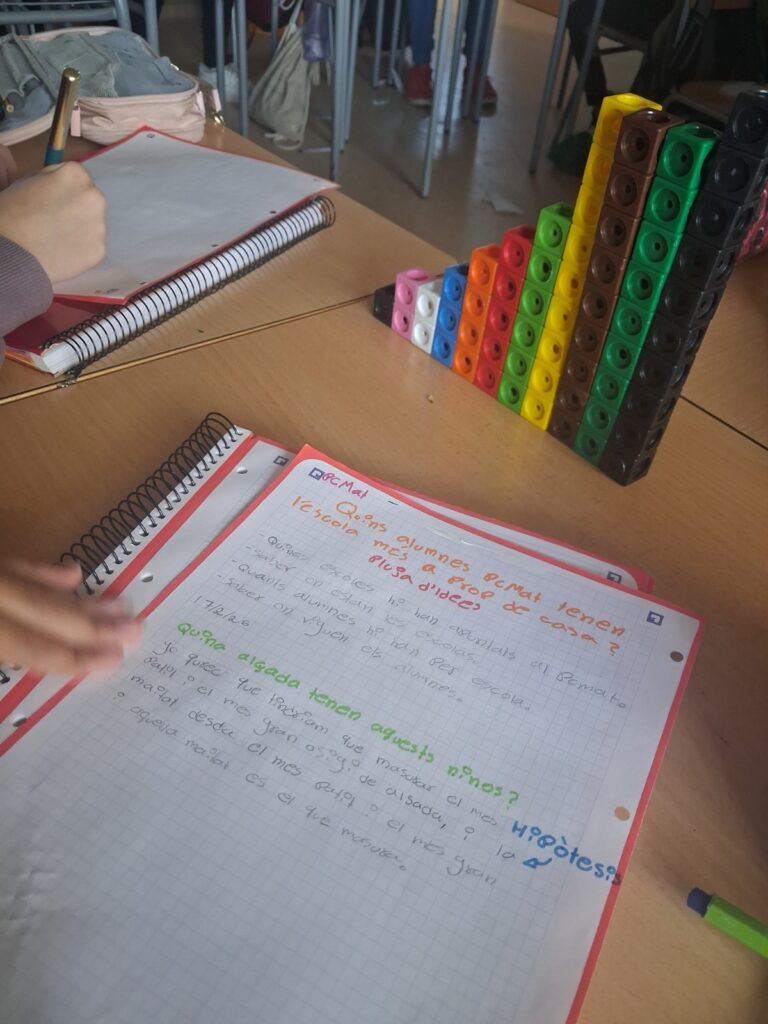 PCMat
Quins alumnes PCMat tenen
l'escola més a prop de casa?
Pluja d'idees
- Quines escoles hi han apuntats al PCmat.
- saber on estan les escolas.
- Quants alumnes hi han per escola.
- saber on viguen els alumnes.
17/2/26
Quina alçada tenen aquests ninos?
yo quec que tindriam que masurar el mes
patit i el mes gran osigi de alsada, i la
maitat desda el mes patit i el mes gran
i aquella maitat es el que masura.
Hipòtesis